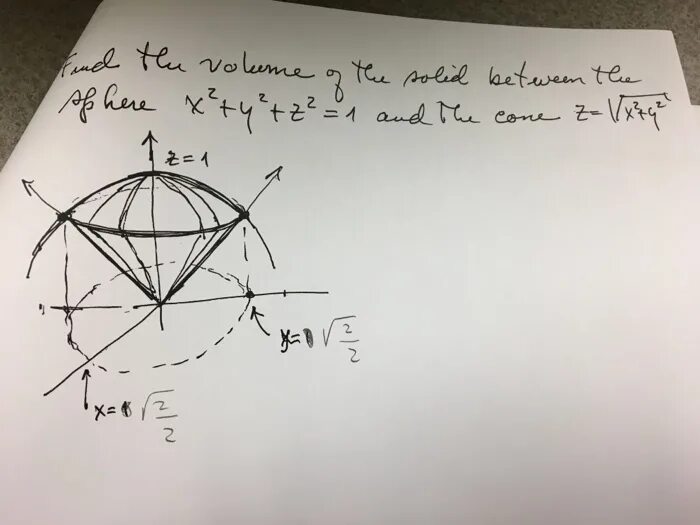 Find the volume of the solid between the
sphere x²+y²+z²=1 and the cone z=√x²+y²
z=1
y= √2/2
x= √2/2